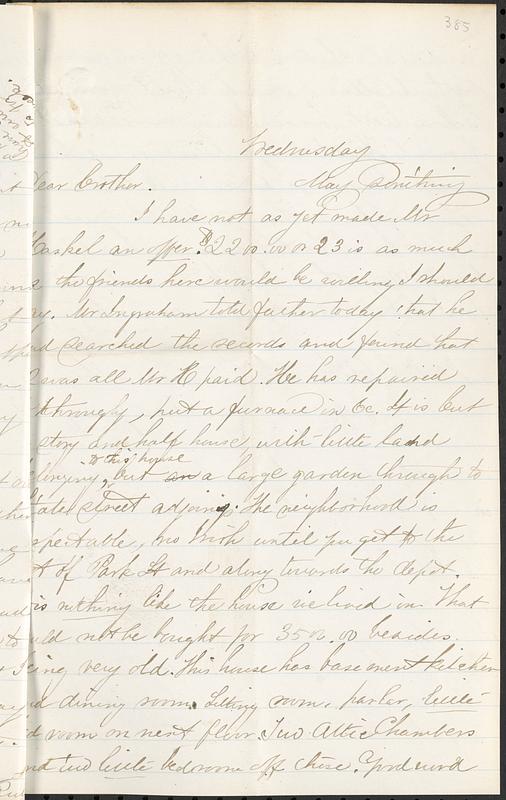 385
Wednesday
Dear Brother. May
I have not as yet made Mr
Haskel an offer. $2200.00 or 23 is as much
the friends here would be willing I should
Mr Ingraham told father today that he
had searched the records and found that
was all Mr H paid. He has repaired
throughly, put a furnace in &c. It is but
story and half house with little land
to this house
belonging, but a large garden through to
State Street adjoing. The neighborhood is
respectable, no Irish until you get to the
of Park St and along towards the depot.
is nothing like the house we lived in. That
could not be bought for 3500.00 besides
being very old. This house has basement kitchen
and dining room. Sitting room, parlor, little
bed room on next floor. Two Attic Chambers
and two little bedrooms off these. Good